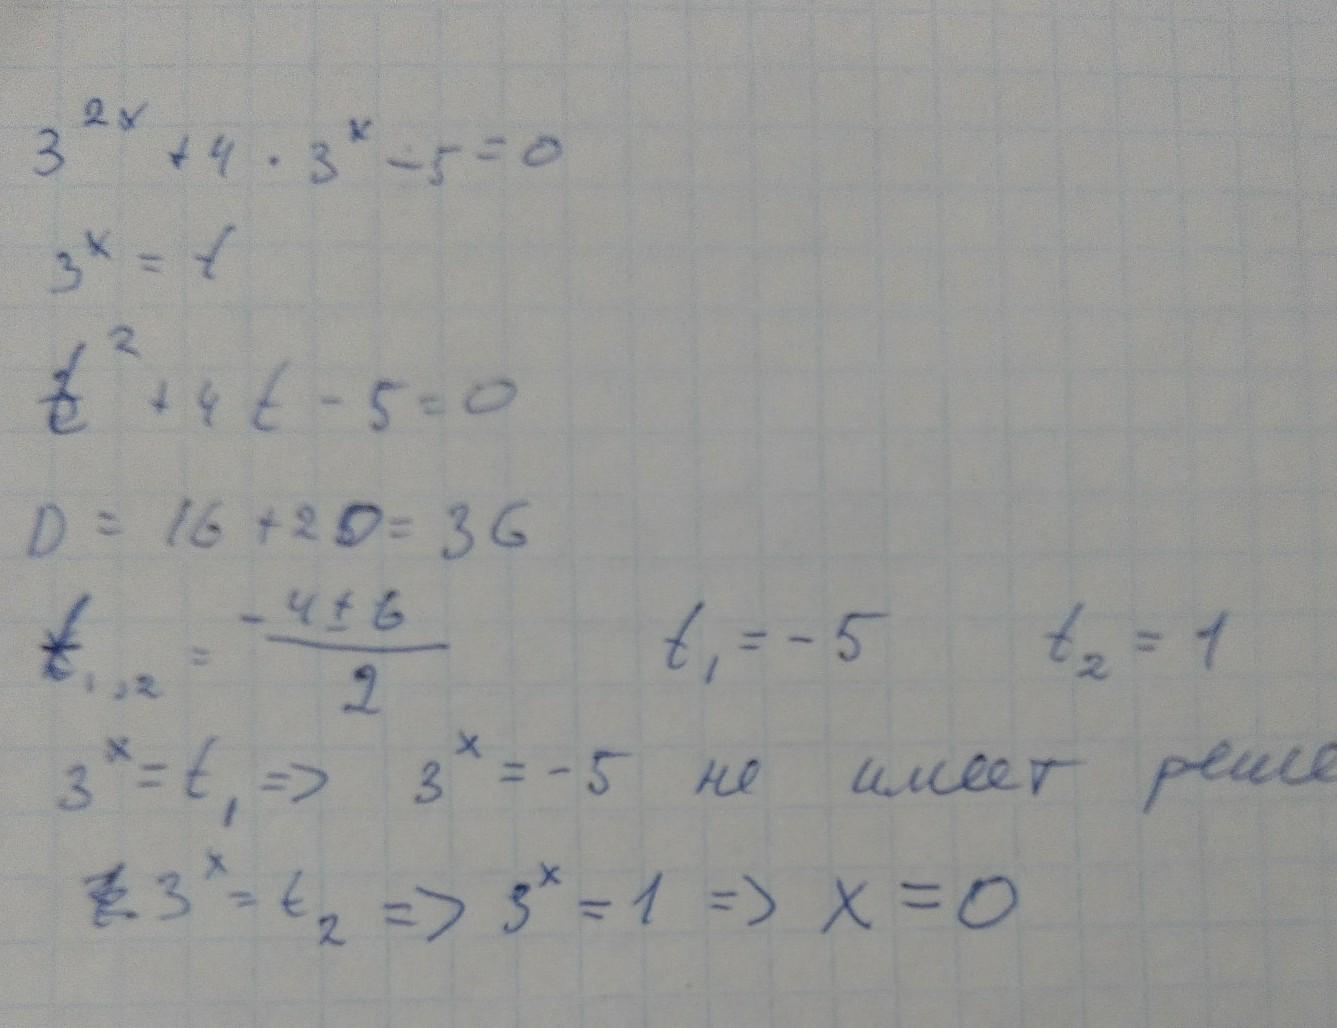 3^{2x} + 4 · 3^x - 5 = 0
3^x = t
t^2 + 4t - 5 = 0
D = 16 + 20 = 36
t_{1,2} = \frac{-4 ± 6}{2} t_1 = -5 t_2 = 1
3^x = t_1 => 3^x = -5 не имеет реше
3^x = t_2 => 3^x = 1 => x = 0